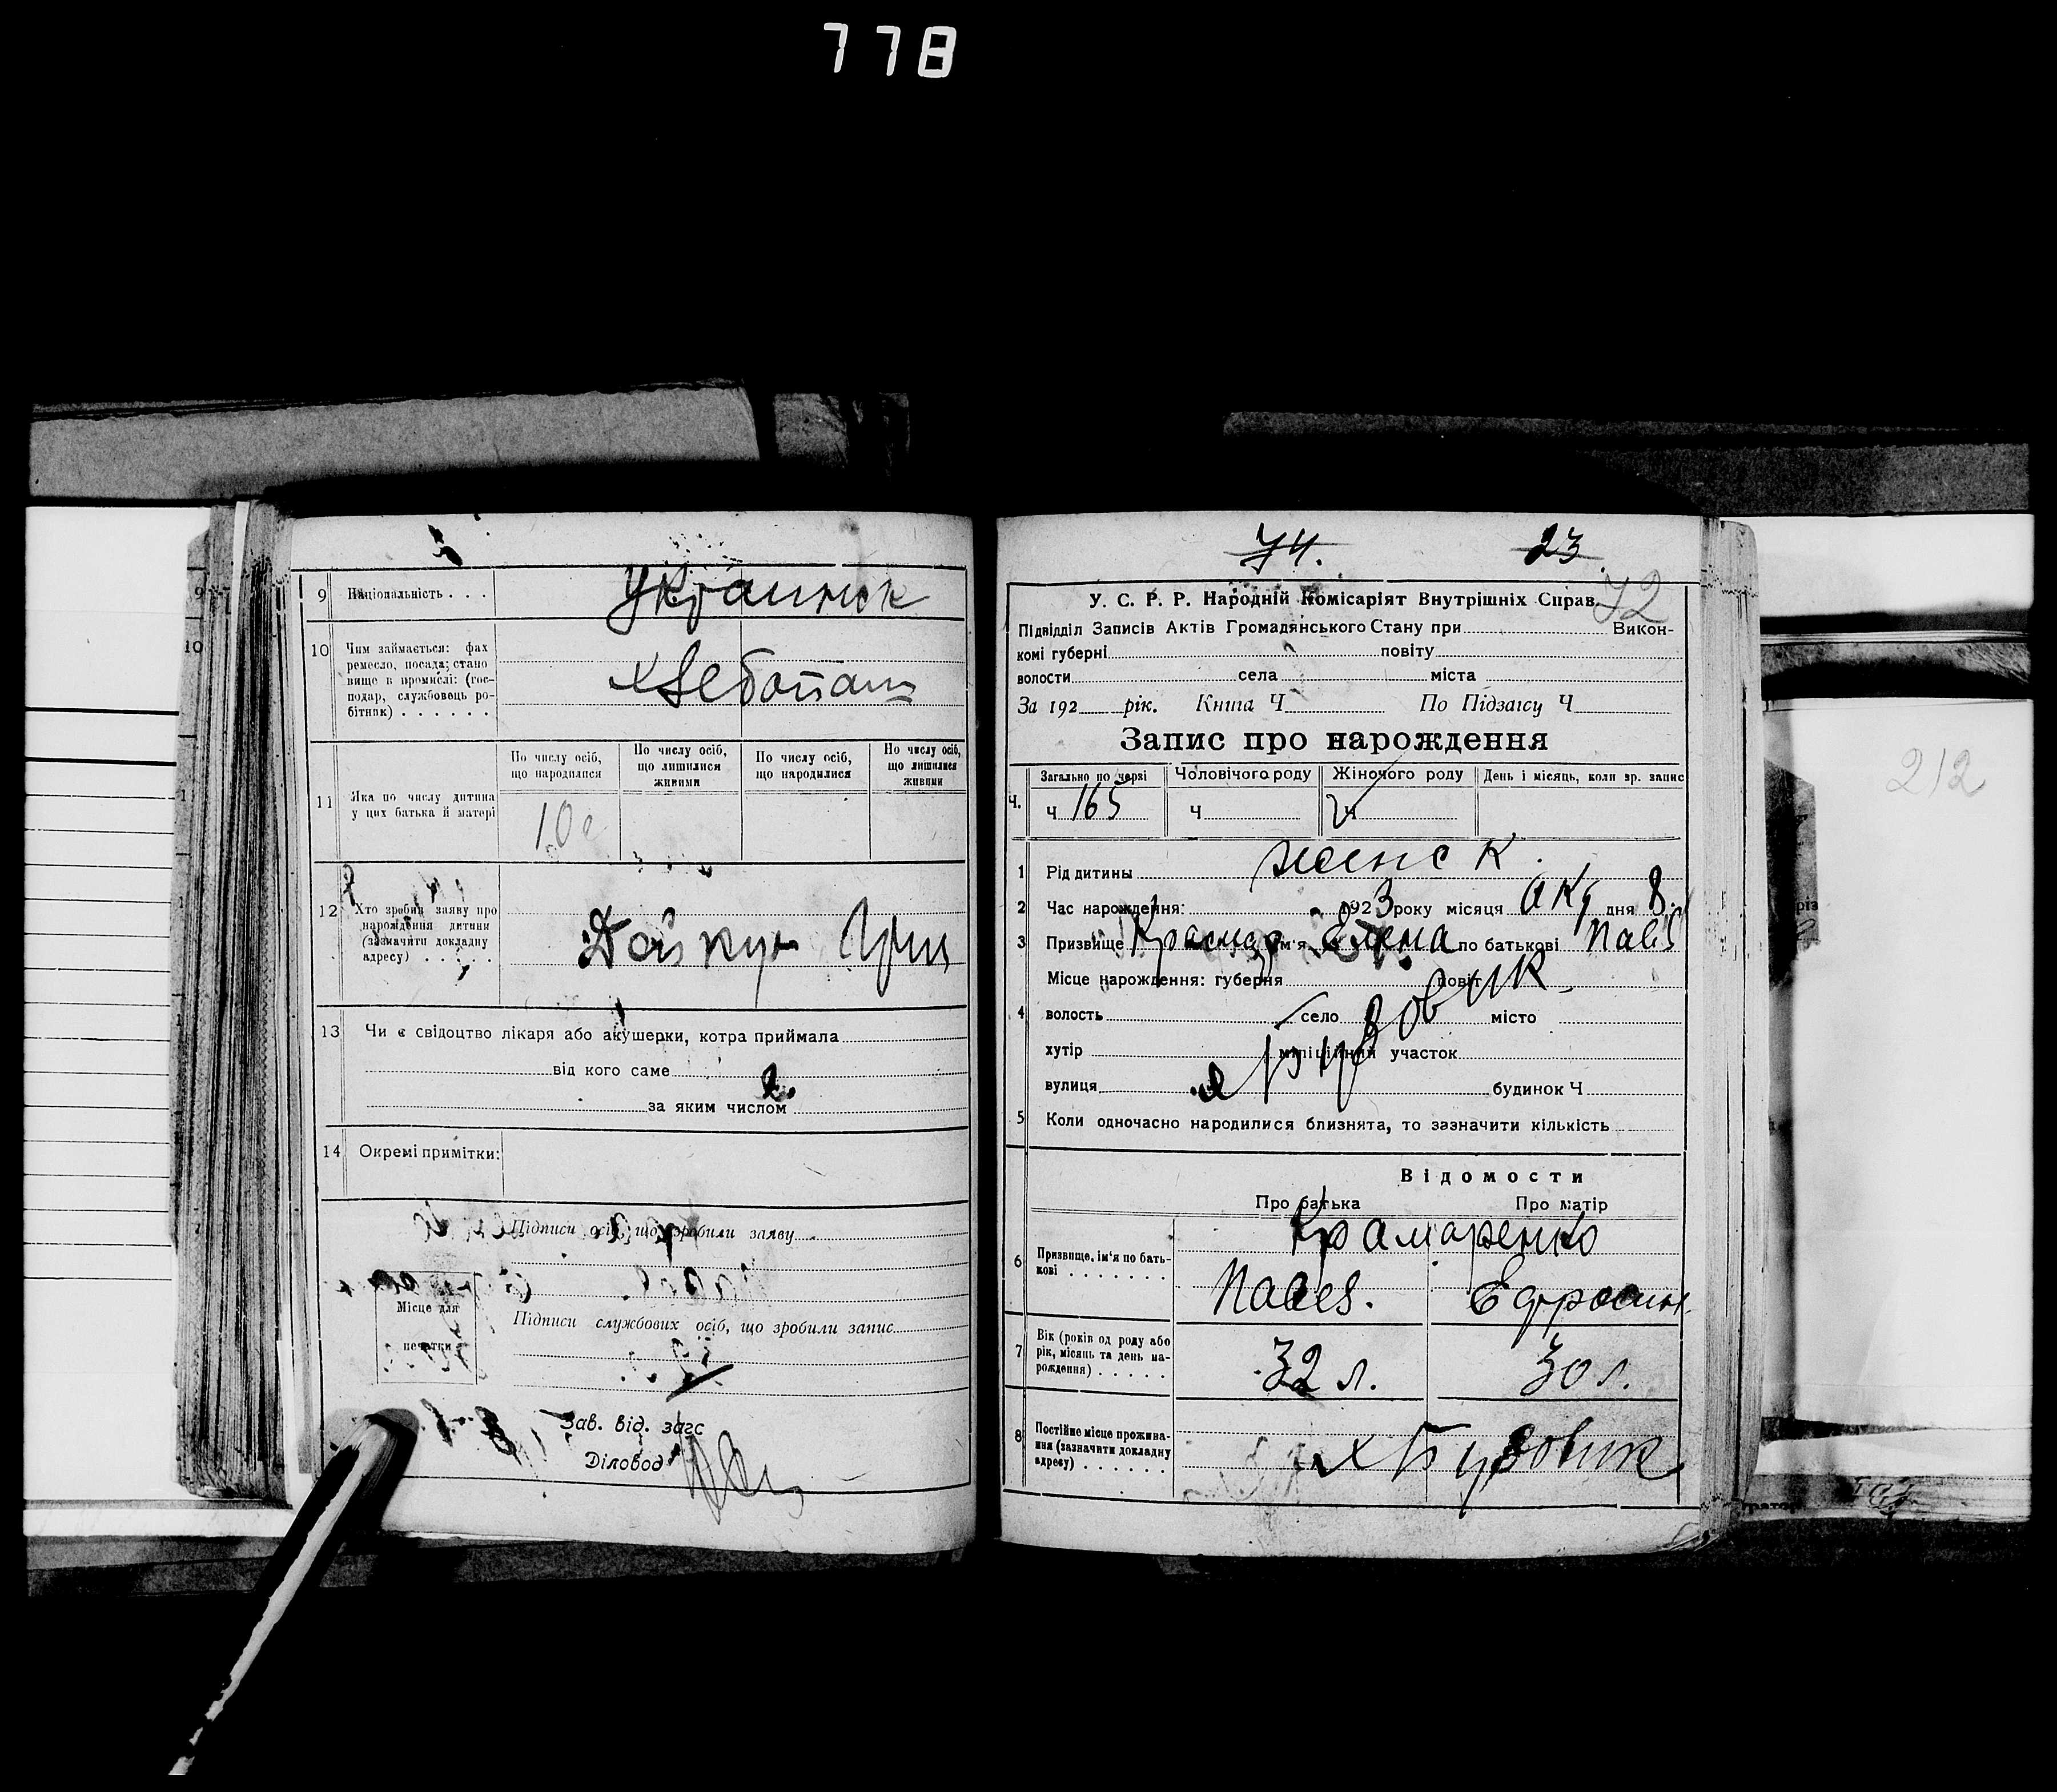 778
9 Національність . . . Украинск
10 Чим займається: фах
ремесло, посада; стано
вище в промислі: (гос-
подар, службовець ро-
бітник) . . . . . .
хлебопаш
11 Яка по числу дитина
у цих батька й матері
По числу осіб,
що народилися
По числу осіб,
що лишилися
живими
По числу осіб,
що народилися
По числу осіб,
що лишилися
живими
12 Хто зробив заяву про
нарождення дитини
(зазначити докладну
адресу) . . . . .
13 Чи є свідоцтво лікаря або акушерки, котра приймала
від кого саме
за яким числом
14 Окремі примітки:
Підписи осіб, що зробили заяву
Місце для
печатки
Підписи службових осіб, що зробили запис
Зав. від. загс
Діловод
74. 23
72
У. С. Р. Р. Народній Комісаріят Внутрішніх Справ.
Підвідділ Записів Актів Громадянського Стану при Викон-
комі губерні повіту
волости села міста
За 192 рік. Книга Ч По Підзагсу Ч
Запис про нарождення
Ч. Загально по черзі Чоловічого роду Жіночого роду День і місяць, коли зр. запис
Ч 165 Ч Ч
1 Рід дитини женск.
2 Час нарождення: 1923 року місяця дня 8
3 Призвище ім'я Елена по батькові
Місце нарождення: губерня повіт
4 волость село місто
хутір міліційний участок
вулиця будинок Ч
5 Коли одночасно народилися близнята, то зазначити кількість
Відомости
Про батька Про матір
6 Призвище, ім'я по бать-
кові . . . . . . .
Крамаренко
Павел. Ефросин
7 Вік (років од роду або
рік, місяць та день на-
рождення) . . . . .
32 л. 30 л.
8 Постійне місце прожива-
ння (зазначити докладну
адресу) . . . . . .
х Бузовик
212